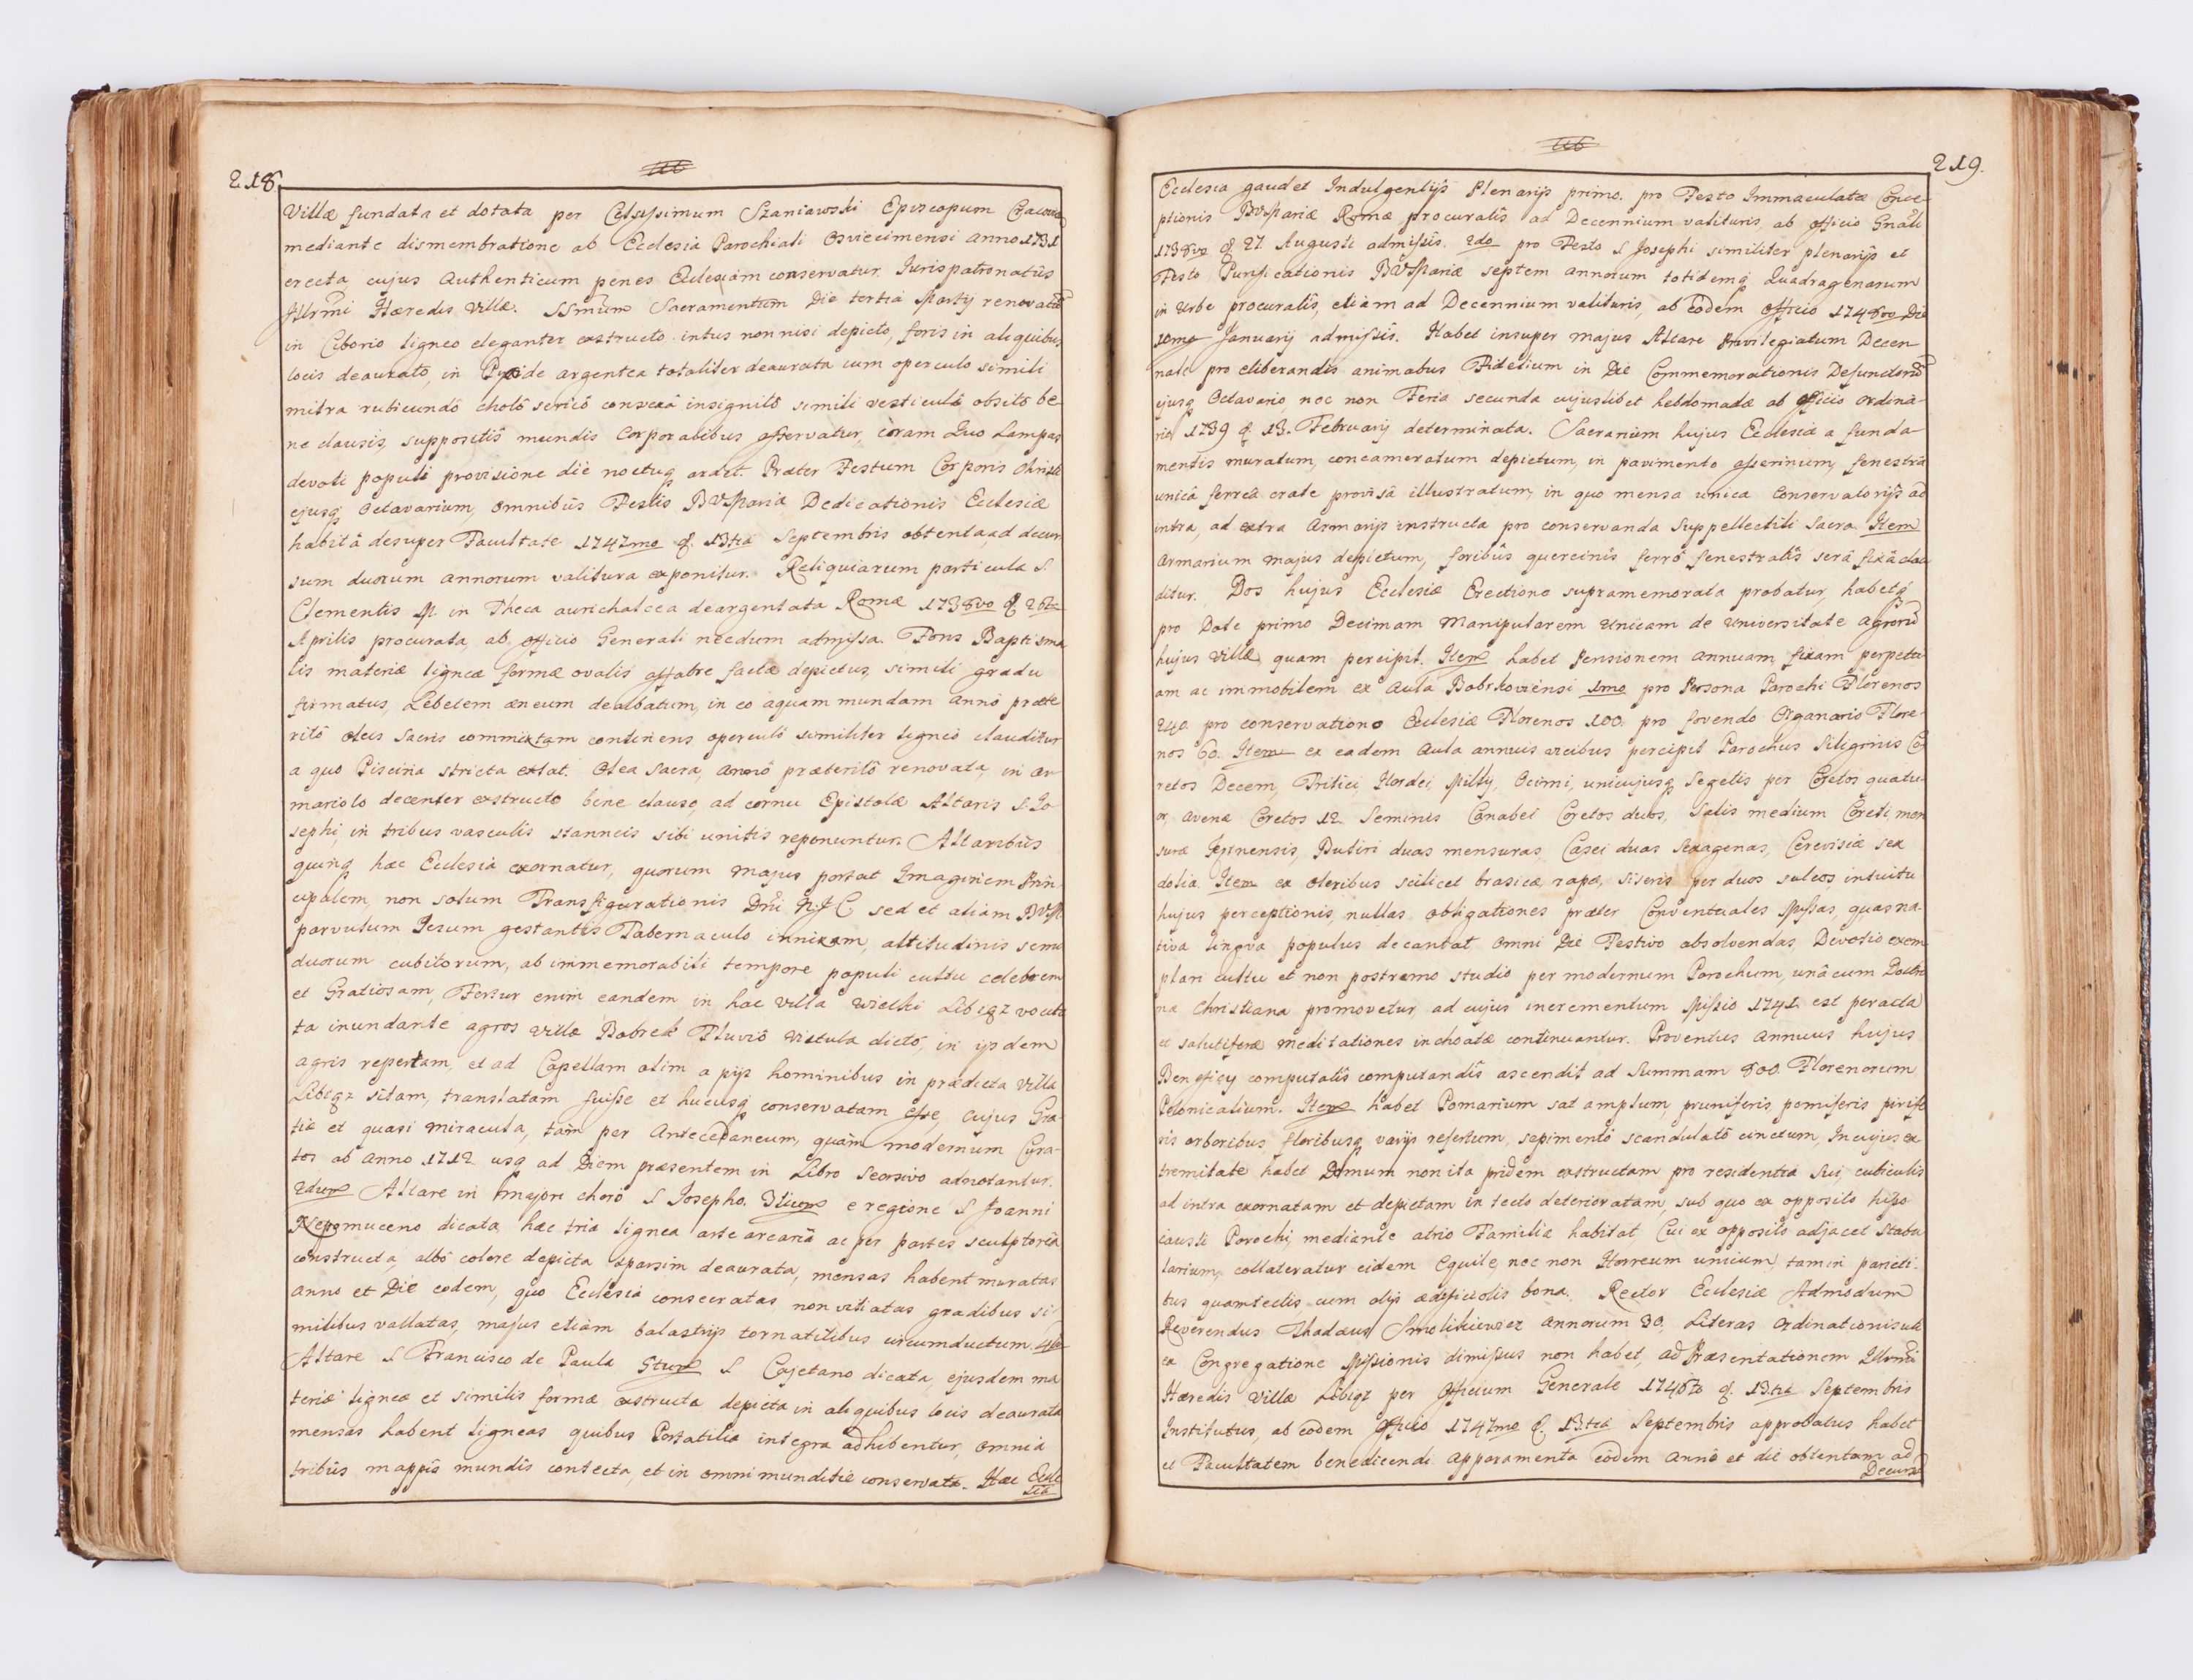 218.
Villæ fundata et dotata per Celsissimum Szaniawski Episcopum
mediante dismembratione ab Ecclesia Parochiali Osviecimensi anno 1731
erecta cujus Authenticum penes Ecclesiam conservatur. Jurispatronatûs
Illrmi Hæredis Villæ. SSmum Sacramentum Die tertia Martij
in Ciborio ligneo eleganter exstructo intus non nisi depicto, foris in aliquibus
locis deaurato, in Pyxide argentea totaliter deaurata cum operculo simili
mitra rubicundô sericô insignitô simili vesticulâ obsitô be
ne clausis, suppositîs mundis Corporalibus asservatur, coram Quo Lampas
devoti populi provisione die noctuq ardet. Præter Festum Corporis Christi
ejusq Octavarium, omnibûs Festis BVMariæ Dedicationis Ecclesiæ
habitâ desuper Facultate 1747mo d. 13tia Septembris obtenta, ad decur
sum duorum annorum valitura exponitur. Reliquiarum particula S
Clementis M. in Theca aurichalcea deargentata Romæ 1738vo d
Aprilis procurata, ab officio Generali necdum admissa. Fons Baptisma
lis materiæ ligneæ formæ ovalis affabre factæ depictus, simili gradu
firmatus, Lebetem æneum dealbatum, in eo aquam mundam anno præte
ritô oleis sacris commixtam continens operculô similiter ligneo clauditur
a quo Piscina stricta extat. Olea Sacra, annô præteritô renovata, in ar
mariolo decenter exstructo bene clauso, ad cornu Epistolæ Altaris S. Jo
sephi, in tribus vasculis stanneis sibi unitis reponuntur. Altaribûs
quinq hæc Ecclesia exornatur, quorum majus portat Imaginem Prin
cipalem, non solum Transfigurationis Dni N.J.C sed et aliam BVM
parvulum Jesum gestantis Tabernaculo innixam, altitudinis
duorum cubitorum, ab immemorabili tempore populi cultu celebrem
et Gratiosam, Fertur enim eandem in hac villa Wielki Libiąz voci
ta inundante agros villæ Bobrek Fluviô Vistula dictô, in ijsdem
agris repertam, et ad Capellam olim a pijs hominibus in prædicta Villa
Libiąz sitam, translatam fuisse et hucusq conservatam esse, cujus Gra-
tiæ et quasi miracula, tàm per Antecedaneum, quàm modernum Cura-
tos ab Anno 1712 usq ad Diem præsentem in Libro Seorsivo adnotantur.
2dum Altare in majori chorô S Josepho. 3tium e regione S Joanni
Nepomuceno dicata, hæc tria lignea arte arcaria ac per partes sculptoria
constructa, albô colore depicta sparsim deaurata, mensas habent muratas
anno et Die eodem, quo Ecclesia consecratas non vitiatas gradibus si-
milibus vallatas, majus etiàm balastrijs tornatilibus circumductum. 4tum
Altare S Francisco de Paula 5tum S Cajetano dicata, ejusdem ma
teriæ ligneæ et similis formæ exstructa depicta in aliquibus locis deaurata
mensas habent ligneas quibus Portatilia integra adhibentur, omnia
tribûs mappîs mundîs contecta, et in omni munditie conservata. Hæc Eccle
sia
219.
Ecclesia gaudet Indulgentijs Plenarijs primo. pro Festo Immaculatæ Conce-
ptionis BVMariæ Romæ procuratîs ad Decennium valituris, ab officio Gnali
1738vo d 27 Augusti admissîs. 2do pro Festo S Josephi similiter plenarijs et
Festo Purificationis BVMariæ septem annorum totidemq Quadragenarum
in Urbe procuratîs, etiàm ad Decennium valituris, ab eôdem officio 1748vo Die
10ma Januarij admissîs. Habet insuper majus Altare Privilegiatum Decen
nale pro eliberandis animabus Fidelium in Die Commemorationis Defunctorũ
ejusq Octavario, nec non Feria secunda cujuslibet hebdomadæ ab officio ordina-
rio 1739 d 13. Februarij determinata. Sacrarium hujus Ecclesiæ a funda-
mentis muratum, concameratum depictum, in pavimento asserinium, fenestrâ
unicâ ferreâ crate provisâ illustratum, in quo mensa unica Conservatorijs ad
intra, ad extra Armarijs instructa pro conservanda Suppellectili Sacra. Item
Armarium majus depictum, foribûs quercinîs ferrô fenestratîs serâ fixâ clau
ditur. Dos hujus Ecclesiæ Erectione supramemorata probatur, habetq
pro Dote primo Decimam Manipularem Unicam de Universitate agrorũ
hujus Villæ quam percipit. Item habet Pensionem annuam, fixam perpetu
am ac immobilem ex Aula Bobrkoviensi 1mo pro Persona Parochi Florenos
240 pro conservatione Ecclesiæ Florenos 100, pro fovendo Organario Flore-
nos 60. Item ex eadem Aula annuis vicibus percipit Parochus Siliginis Co
retos Decem, Tritici, Hordei, Milij, Ocimi, uniuscujusq Segetis per Coretos quatu-
or, avenæ Coretos 12 Seminis Canabel Coretos duos, Salis medium Coreti, men
suræ, Butiri duas mensuras, Casei duas Sexagenas, Cerevisiæ sex
dolia. Item ex oleribus scilicet brasicæ, rapæ, siseris per duos sulcos, intuitu
hujus perceptionis, nullas obligationes præter Conventuales Missas, quas na-
tiva Lingva populus decantat omni Die Festivo absolvendas, Devotio exem
plari cultu et non postremo studio per modernum Parochum, unâ cum Doctri
na Christiana promovetur, ad cujus incrementum Missio 1741 est peracta
et salutiferæ meditationes inchoatæ continuantur. Proventus Annuus hujus
Beneficij computatîs computandîs ascendit ad Summam 800 Florenorum
Polonicalium. Item habet Pomarium sat amplum pruniferis, pomiferis pirife
ris arboribus floribusq varijs refertum, sepimentô scandulatô cinctum, In cujus ex
tremitate habet Domum non ita pridem exstructam pro residentia Sui, cubiculis
ad intra exornatam et depictam in tecto deterioratam, sub quo ex opposito hipo
causti Parochi, mediante atrio Familia habitat, Cui ex opposito adjacet Stabu
larium, collateratur eidem Equile, nec non Horreum unicum, tam in parieti-
bus quam tectis, cum alijs ædificiolis bona. Rector Ecclesiæ Admodum
Reverendus Thadæus Smolikiewicz annorum 30, Literas Ordinationis uti
ex Congregatione Missionis dimissus non habet, ad Præsentationem Illrmi
Hæredis Villæ Libiąz per Officium Generale 1746to d. 13tia Septembris
Institutus, ab eodem officio 1747mo d. 13tia Septembris approbatus habet
et Facultatem benedicendi apparamenta eôdem Annô et die obtentam ad
Decursũ